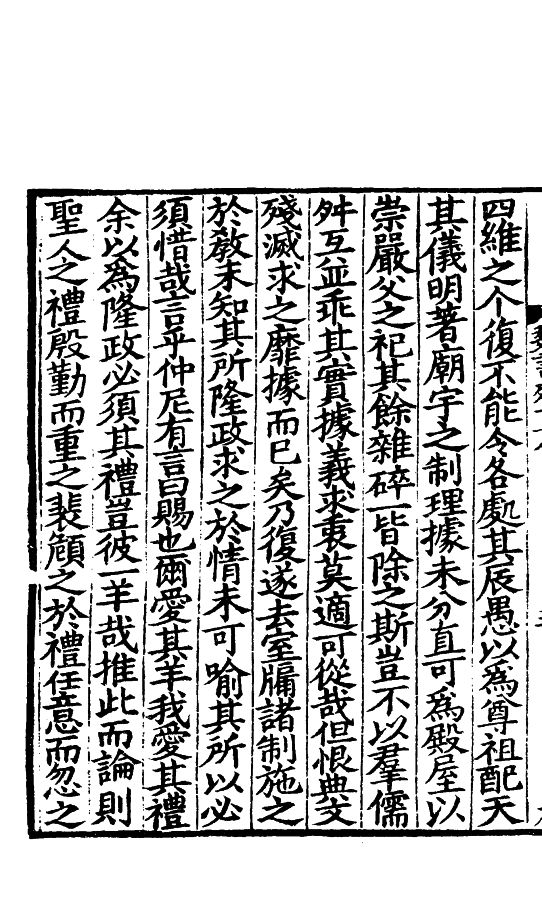 四維之个復不能令各處其辰愚以爲尊祖配天
其儀明著廟宇之制理據未分直可爲殿屋以
崇嚴父之祀其餘雜碎一皆除之斯豈不以羣儒
舛互並乖其實據義求衷莫適可從哉但恨典文
殘滅求之靡據而已矣乃復遂去室牖諸制施之
於教未知其所隆政求之於情未可喻其所以必
須惜哉言乎仲尼有言曰賜也爾愛其羊我愛其禮
余以爲隆政必須其禮豈彼一羊哉推此而論則
聖人之禮殷勤而重之裴頠之於禮任意而忽之